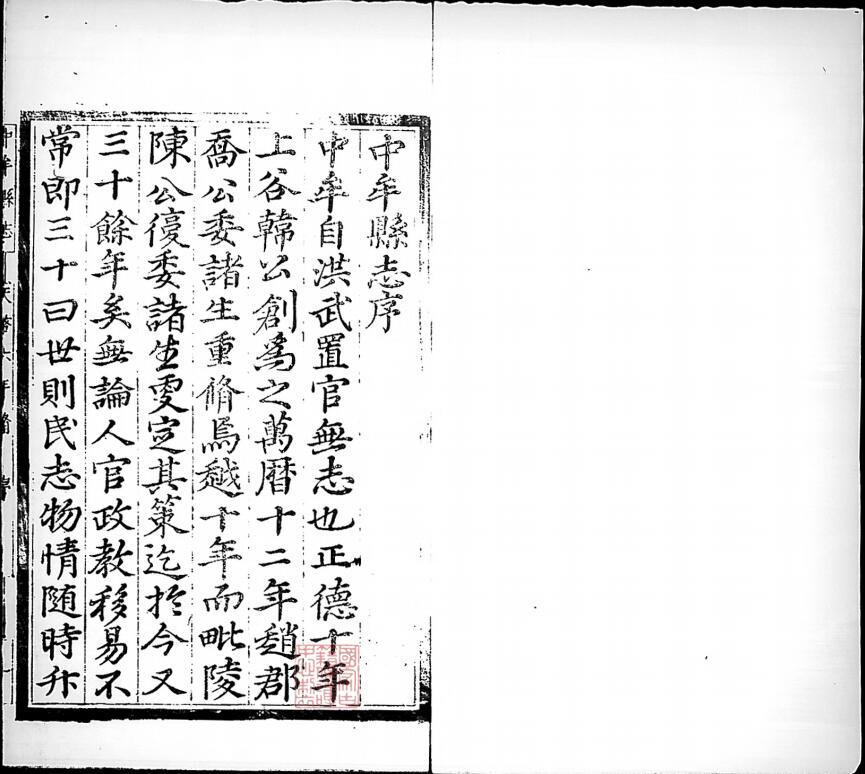 中牟縣志序
中牟自洪武置官無志也正德十年
上谷韓公創爲之萬曆十二年趙郡
喬公委諸生重脩焉越十年而毗陵
陳公復委諸生更定其策迄於今又
三十餘年矣無論人官政教移易不
常即三十曰世則民志物情隨時升
中牟縣志